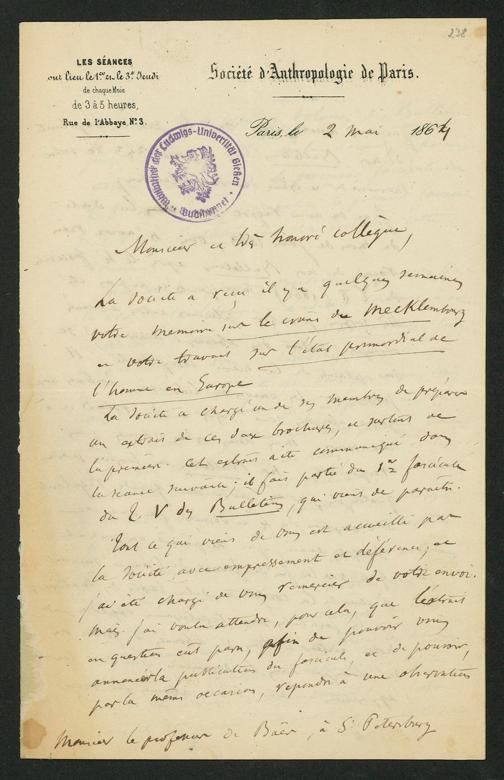 238
LES SÉANCES
ont lieu le 1er et le 3e Jeudi
de chaque Mois
de 3 à 5 heures,
Rue de l'Abbaye, No 3.
Société d'Anthropologie de Paris.
Paris, le 2 mai 1864
Monsieur et très honoré collègue,
La Société a reçu il y a quelques semaines
votre mémoire sur le crâne du Mecklembourg
et votre travail sur l'état primordial de
l'homme en Europe
La Société a chargé un de ses membres de préparer
un extrait de ces deux brochures, et surtout de
la première. Cet extrait a été communiqué dans
la séance suivante; il fait partie du 1er fascicule
du T. V des Bulletins, qui vient de paraître.
Tout ce qui vient de vous est accueilli par
la Société avec empressement et déférence, et
j'ai été chargé de vous remercier de votre envoi.
Mais j'ai voulu attendre, pour cela, que l'extrait
en question eût paru, afin de pouvoir vous
annoncer la publication du fascicule, et de pouvoir,
par la même occasion, répondre à une observation
Monsieur le professeur de Baër, à St Petersburg